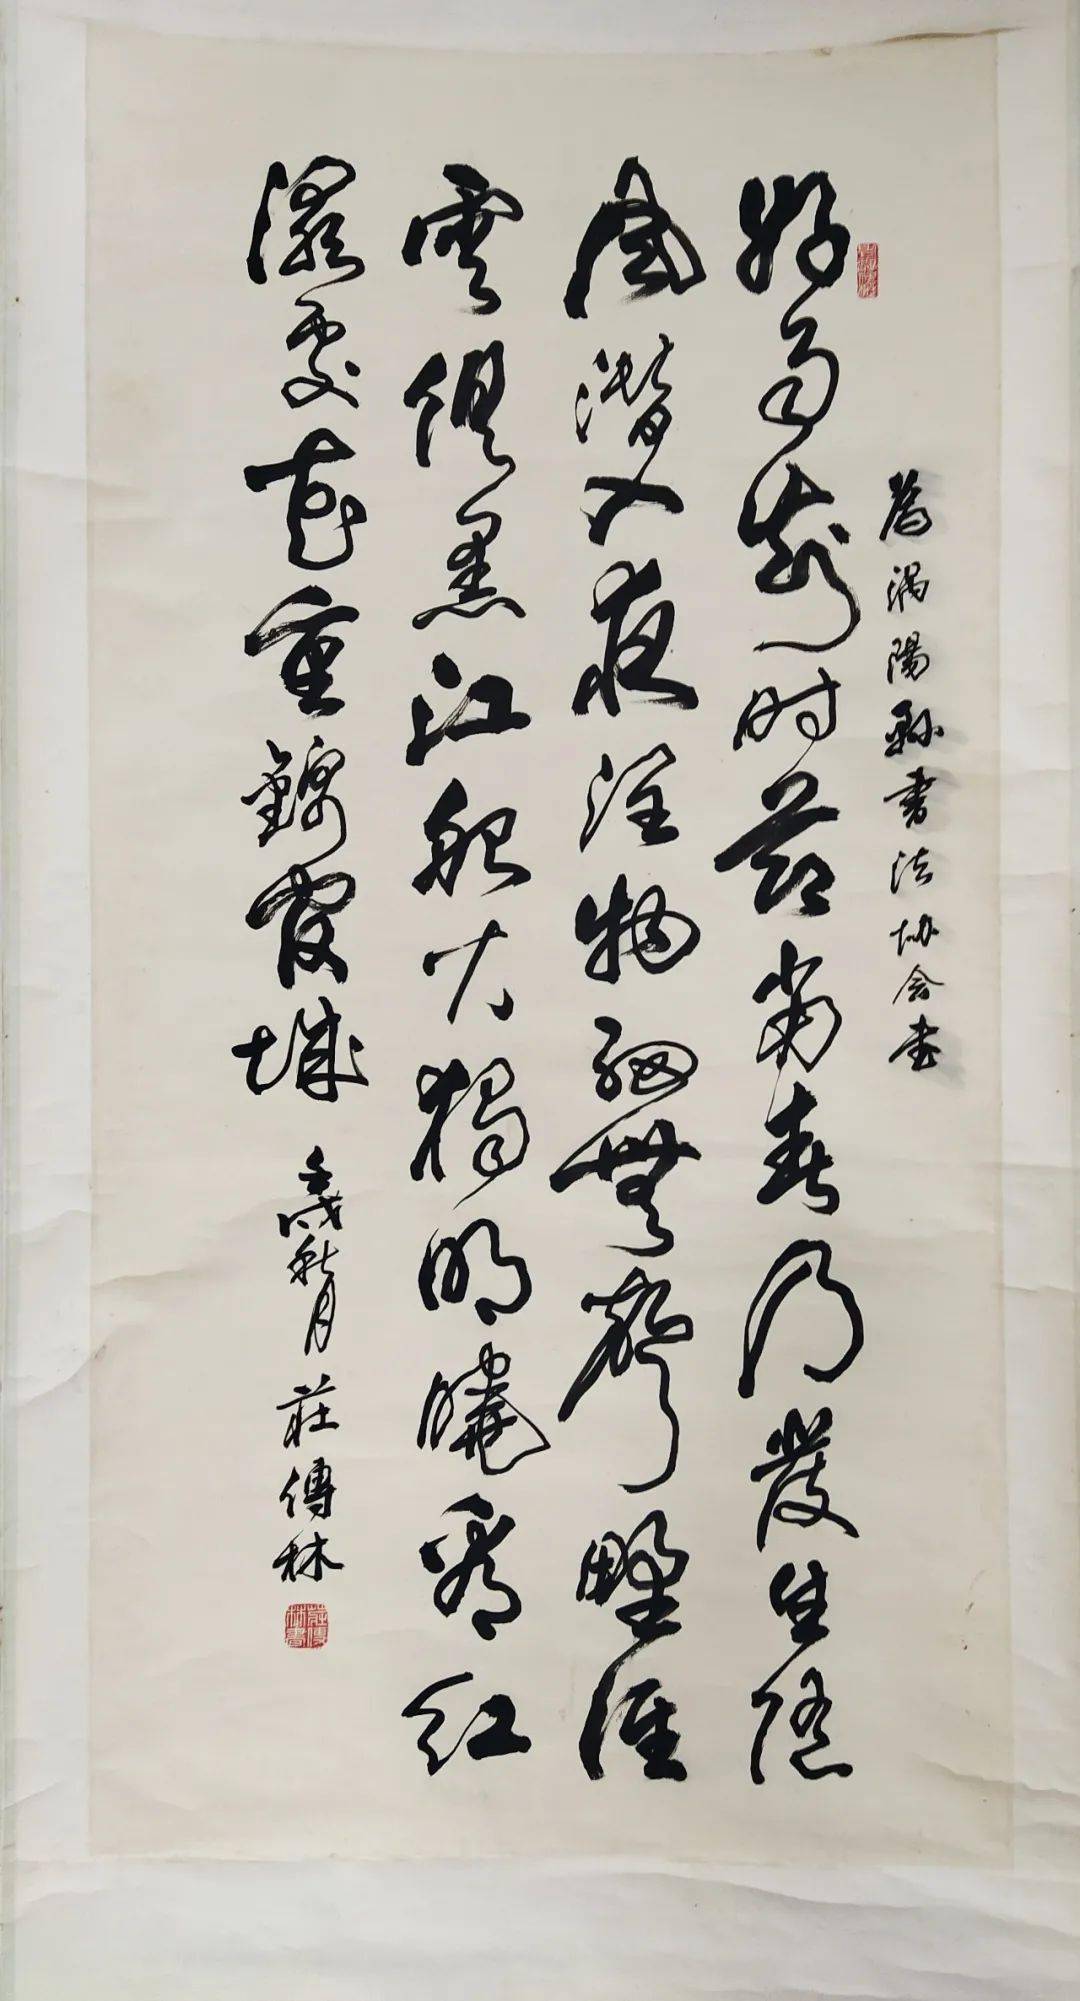 為渦陽縣書法协會書
好雨知时節當春乃發生隨
風潛入夜潤物細無聲野徑
雲俱黑江船火獨明曉看紅
濕處花重錦官城
壬戌秋月 莊傳林
莊傳林書